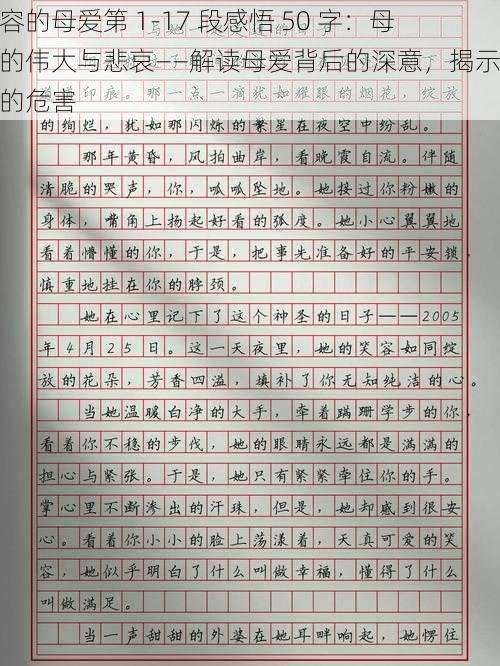 容的母爱第 1-17 段感悟 50 字：母
的伟大与悲哀——解读母爱背后的深意，揭示
的危害
印痕。那一点一滴犹如耀眼的烟花，绽放
的绚烂，犹如那闪烁的繁星在夜空中纷乱。
那年黄昏，风拍曲岸，看晚霞自流。伴随
清脆的哭声，你，呱呱坠地。她接过你粉嫩的
身体，嘴角上扬起好看的弧度。她小心翼翼地
看着懵懂的你，于是，把事先准备好的平安锁，
慎重地挂在你的脖颈。
她在心里记下了这个神圣的日子——2005
年4月25日。这一天夜里，她的笑容如同绽
放的花朵，芳香四溢，填补了你无知纯洁的心。
当她温暖白净的大手，牵着蹒跚学步的你，
看着你不稳的步伐，她的眼睛永远都是满满的
担心与紧张。于是，她只有紧紧牵住你的手。
掌心里不断渗出的汗珠，但是，她却感到很安
心。看着你小小的脸上荡漾着，天真可爱的笑
容，她似乎明白了什么叫做幸福，懂得了什么
叫做满足。
当一声甜甜的外婆在她耳畔响起，她愣住